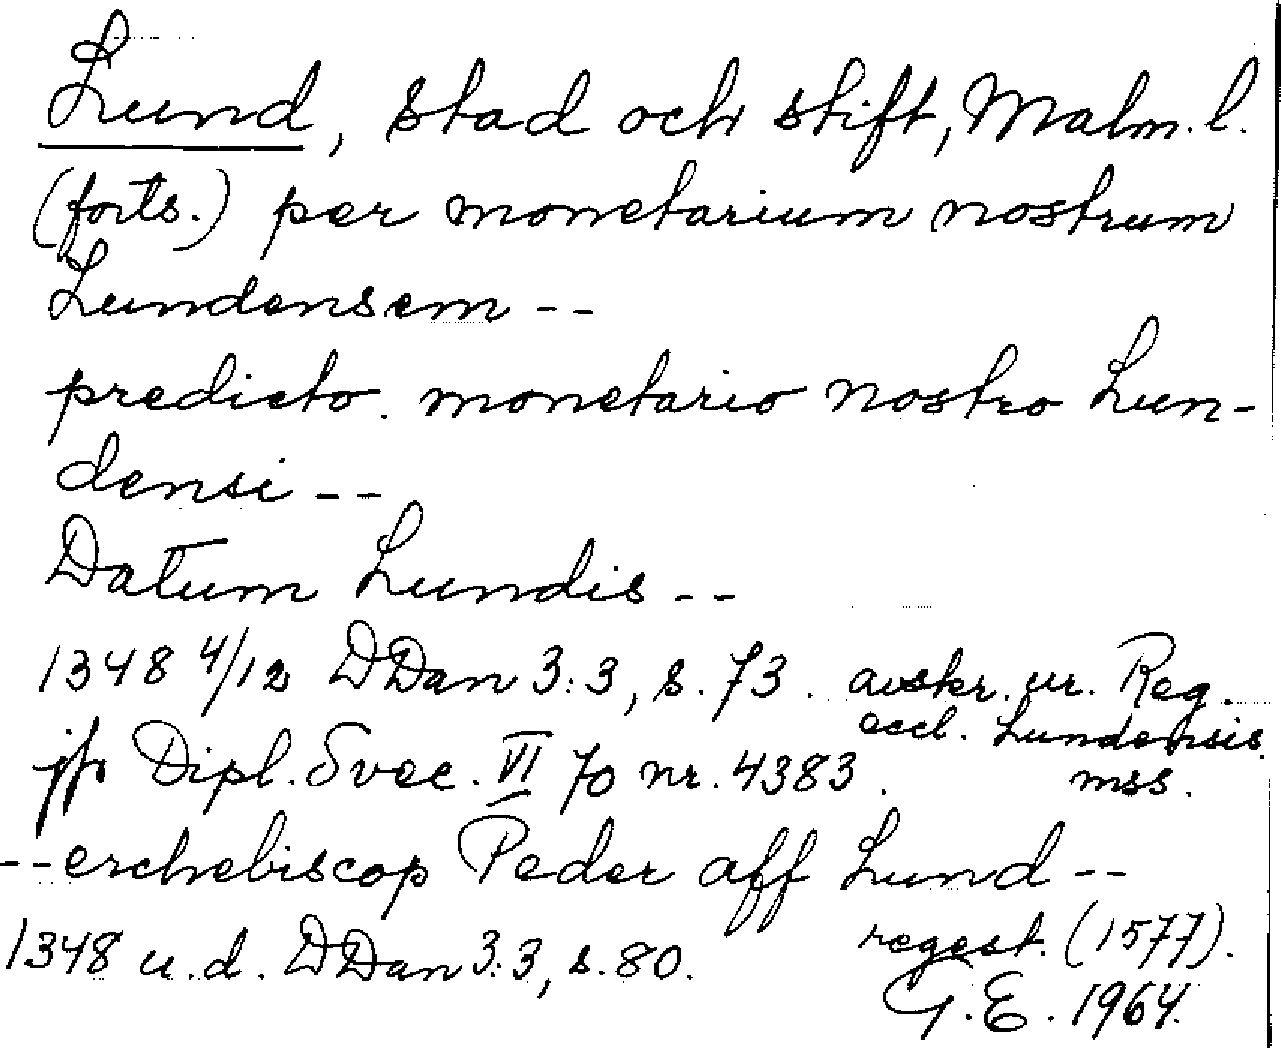 Lund, stad och stift, Malm. l.
(forts.) per monetarium nostrum
Lundensem --
predicto. monetario nostro Lun-
densi --
Datum Lundis --
1348 4/12 DDan 3:3, s. 73. avskr. ur. Reg.
eccl. Lundensis
jfr Dipl. Svec. VI 70 nr. 4383. mss.
-- erchebiscop Peder aff Lund --
1348 u.d. DDan 3:3, s. 80. regest. (1577).
G. E. 1964.